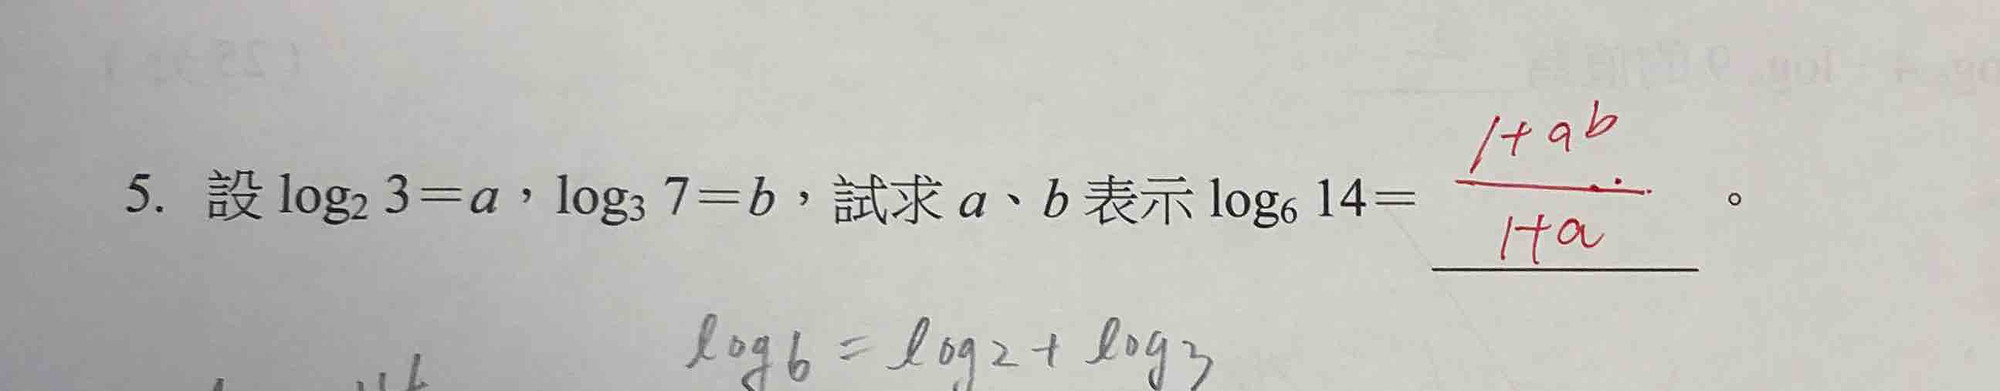 5. 設 log₂ 3=a，log₃ 7=b，試求 a、b 表示 log₆ 14= (1+ab)/(1+a) 。
log6 = log2 + log3